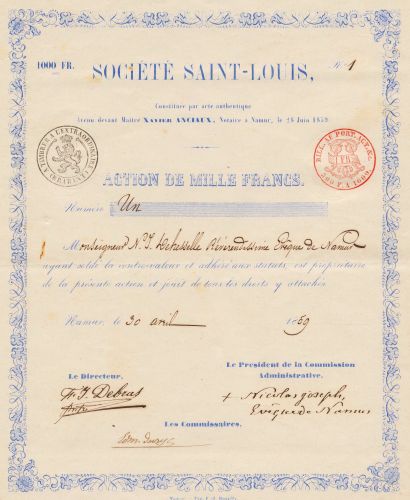 1000 FR.
N° 1
SOCIÉTÉ SAINT-LOUIS,
Constituée par acte authentique
devant Maître XAVIER ANCIAUX, Notaire à Namur, le 28 Juin 1852
TIMBRE A L'EXTRAORDINAIRE
BRABANT
1 FR.
500 F. A 1000.
ACTION DE MILLE FRANCS.
Numéro Un
Monseigneur N. J. Dehesselle Révérendissime Evêque de Namur
ayant soldé la contrevaleur et adhéré aux statuts, est propriétaire
de la présente action et jouit de tous les droits y attachés.
Namur, le 30 avril 1859
Le Directeur,
Le Président de la Commission
Administrative,
F. J. Debras
+ Nicolas Joseph,
Evêque de Namur
Les Commissaires.